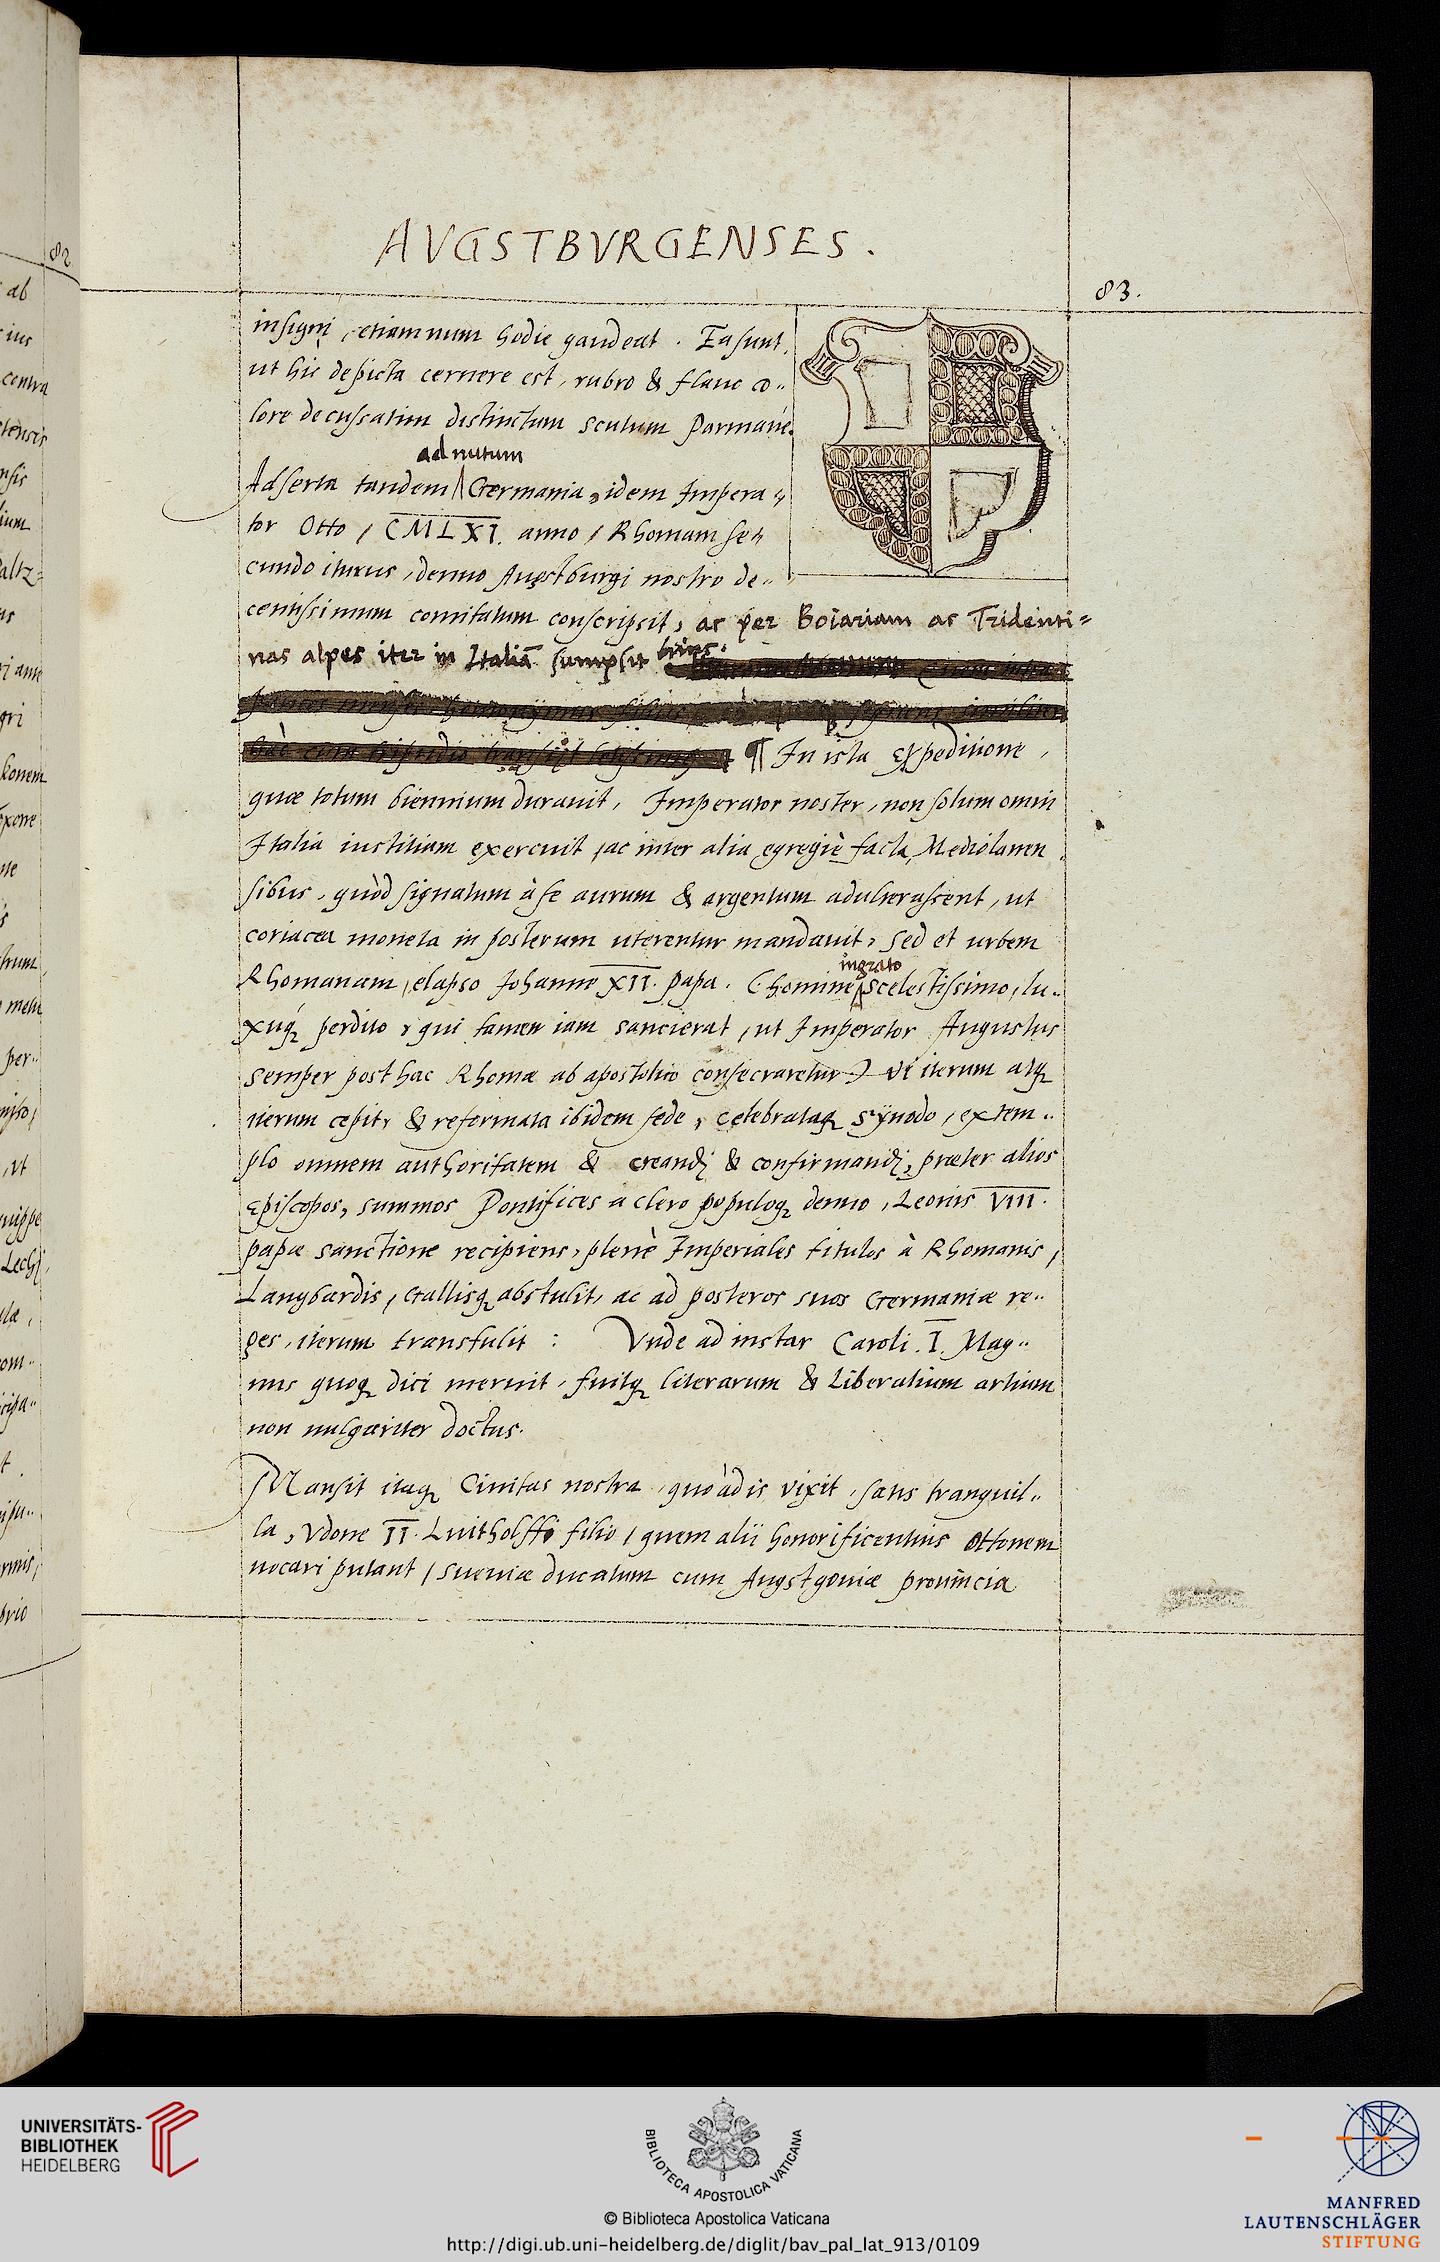 AVGSTBVRGENSES.
83.
insigni, etiamnum hodie gaudeat. Ea sunt,
ut hic depicta cernere est, rubro & flauo co-
lore decussatim distinctum scutum Parmaue.
ad nutum
Adserta tandem Germania, idem Impera-
tor Otto / CMLXI. anno / Rhomam se-
cundo iturus, denuo Augstburgi nostro de-
centissimum comitatum conscripsit, ac per Boiariam ac Tridenti=
nas alpes iter in Italiā sumpsit
¶ In ista expeditione,
quæ totum biennium durauit, Imperator noster, non solum omni
Italia iustitiam exercuit, ac inter alia egregiè facta, Mediolanen
sibus, quòd signatum à se aurum & argentum adulterassent, ut
coriacea moneta in posterum uterentur mandauit, sed et urbem
ingrato
Rhomanam, elapso Johanne XII. papa. (homine scelestissimo, lu-
xuq́ꝫ perdito, qui tamen iam sancierat, ut Imperator Augustus
semper posthac Rhomæ ab apostolico consecraretur) vi iterum atqꝫ
iterum cepit, & reformata ibidem sede, celebrataqꝫ sÿnodo, extem-
plo omnem authoritatem & creandi & confirmandi, præter alios
Episcopos, summos Pontifices a clero populoqꝫ denuo, Leonis VIII.
papæ sanctione recipiens, plenè Imperiales titulos à Rhomanis,
Langbardis, Gallisqꝫ abstulit, ac ad posteros suos Germaniæ re-
ges, iterum transtulit: Vnde ad instar Caroli. I. Mag-
nus quoqꝫ dici meruit, fuitqꝫ literarum & Liberalium artium
non uulgariter doctus.
Mansit itaqꝫ Ciuitas nostra, quòad is vixit, satis tranquil-
la, Vdone II. Luitholffi filio / quem alii honorificentius Ottonem
uocari putant / Sueuiæ ducatum cum Augstgouiæ prouincia
82
UNIVERSITÄTS-
BIBLIOTHEK
HEIDELBERG
BIBLIOTECA APOSTOLICA VATICANA
© Biblioteca Apostolica Vaticana
http://digi.ub.uni-heidelberg.de/diglit/bav_pal_lat_913/0109
MANFRED
LAUTENSCHLÄGER
STIFTUNG